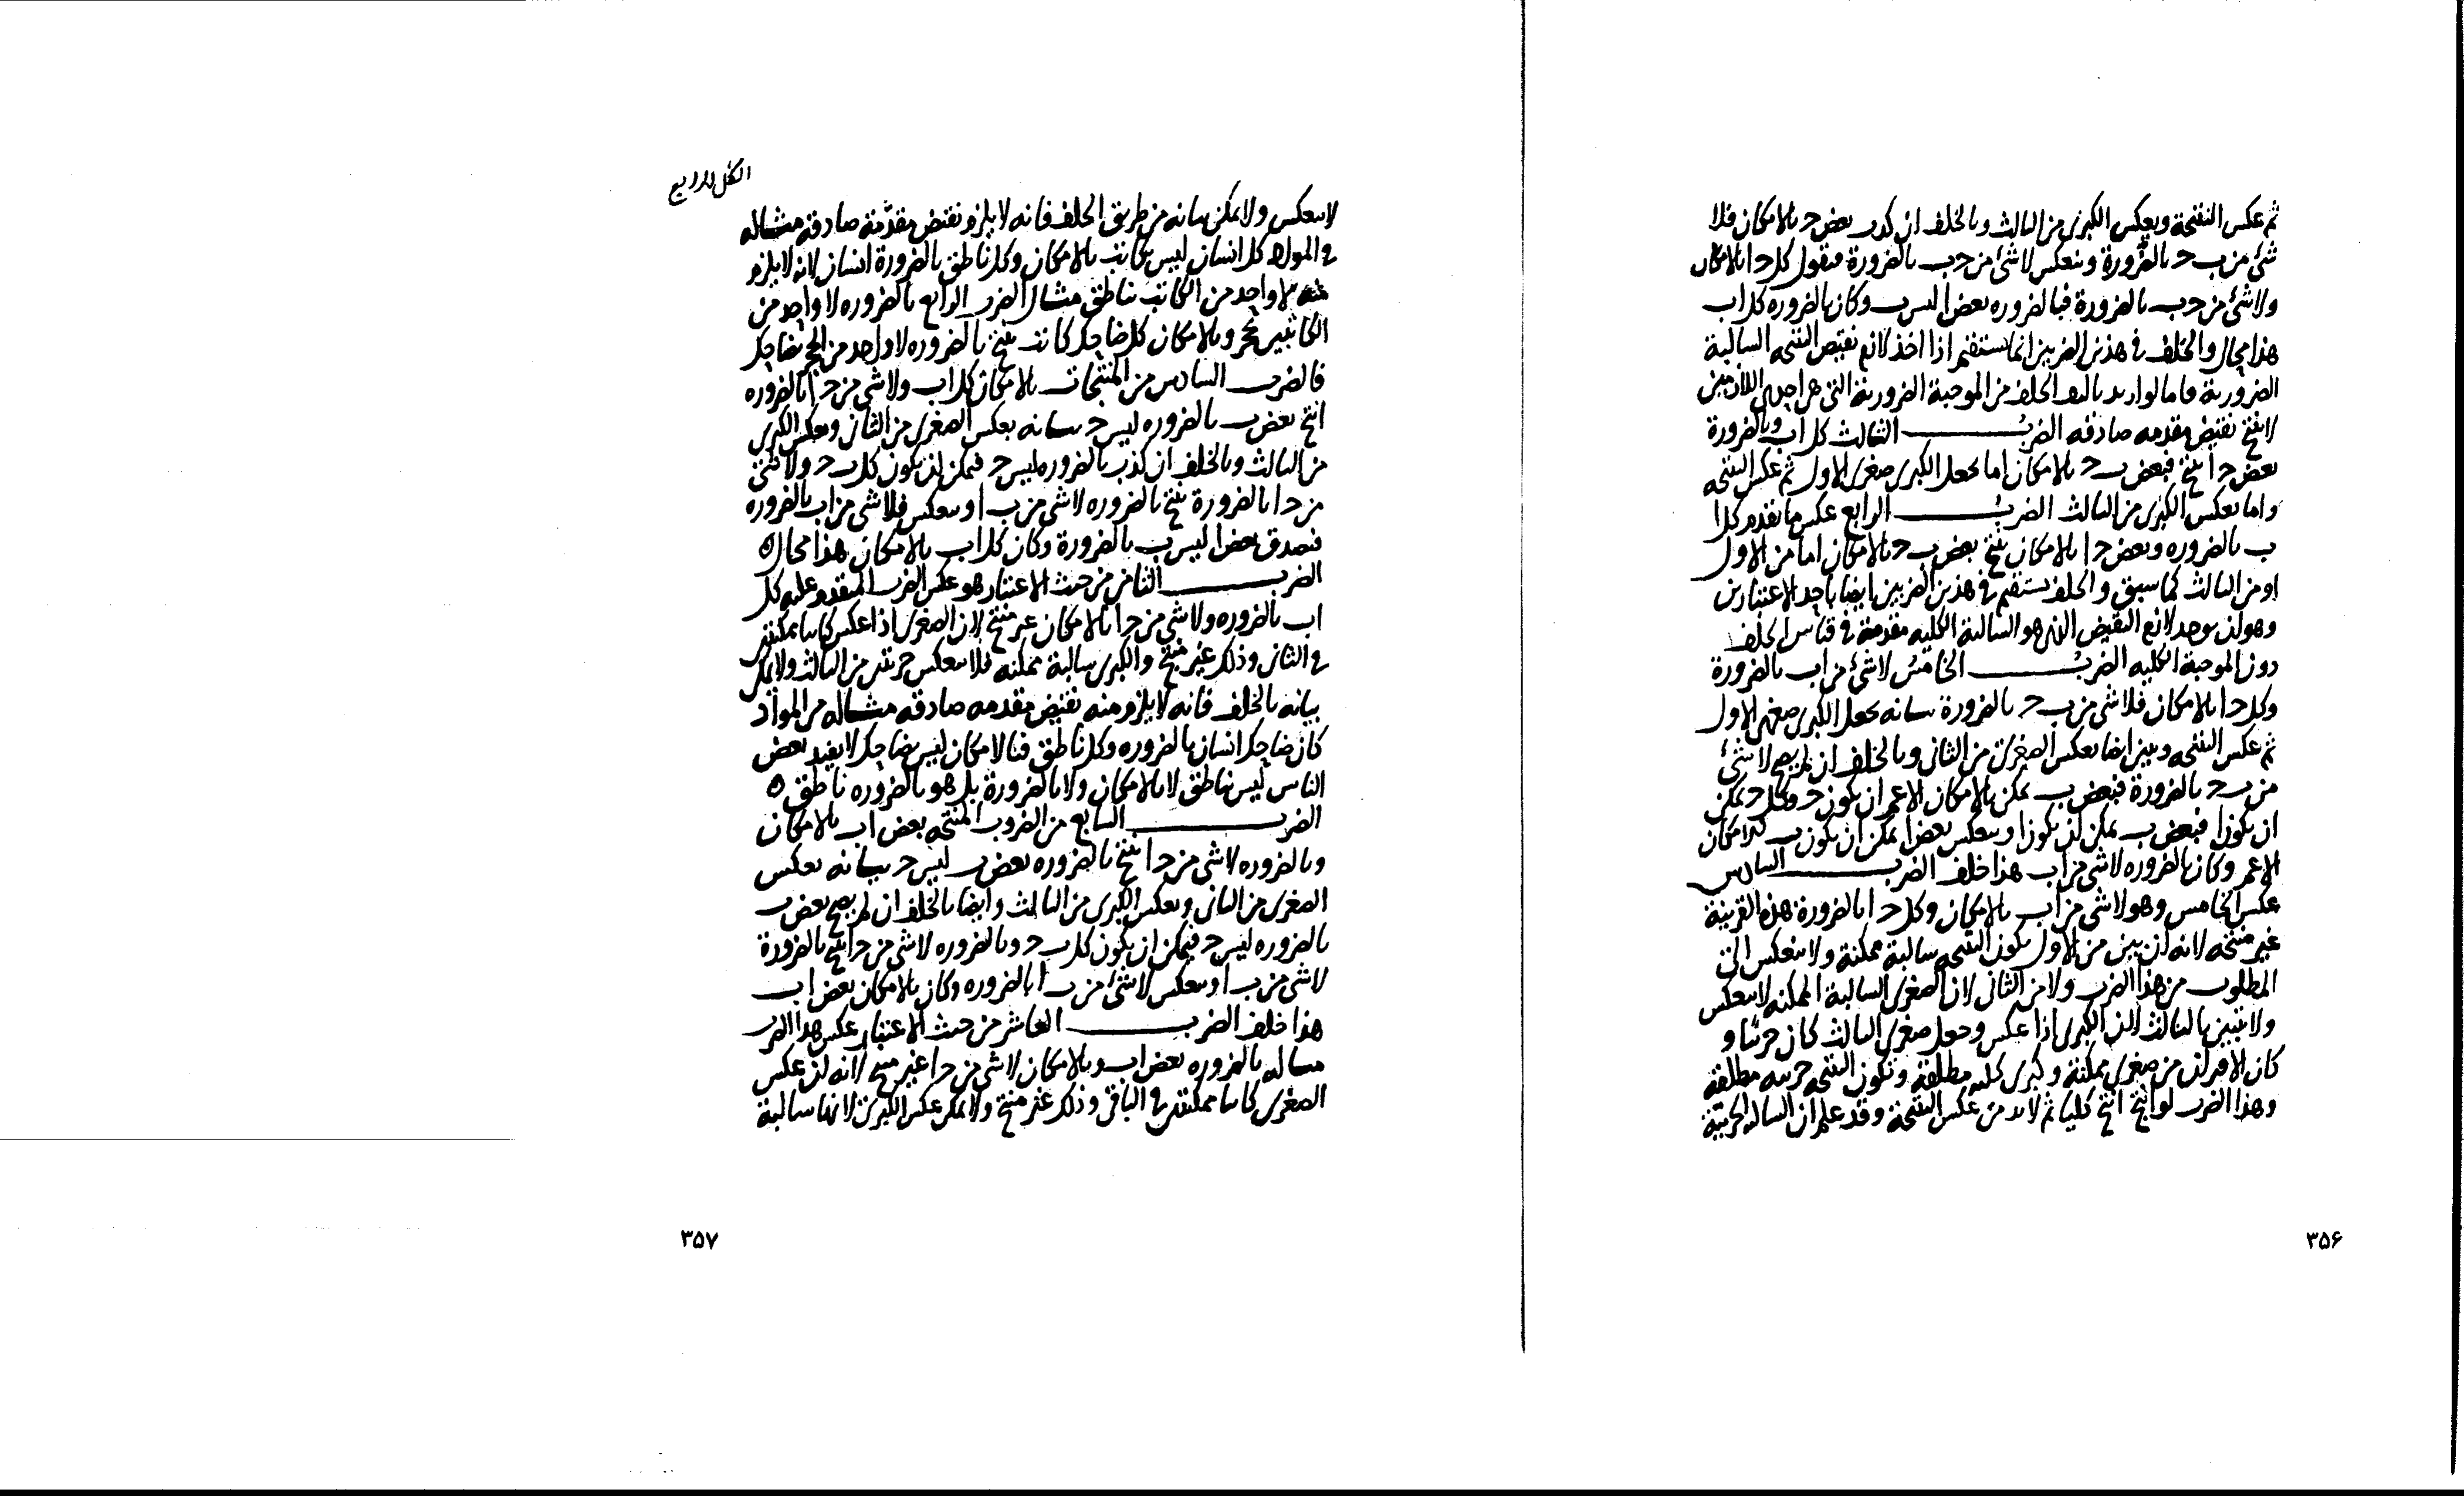 ثم عكس النتيجة وبعكس الكبرى من الثالث وبالخلف ان كذب بعض ح بالامكان فلا
شئ من ب ح بالضرورة وينعكس لا شئ من ح ب بالضرورة فنقول كل ح ا بالامكان
ولا شئ من ح ب بالضرورة فبالضروره بعض ا ليس ب وكان بالضروره كل ا ب
هذا محال والخلف في هذين الضربين انما يستقيم اذا اخذ لازم نقيض النتيجه السالبة
الضرورية فاما لو اريد بالف الخلف من الموجبة الضرورية التى هى احدى اللازمين
لا ينتج نقيض مقدمه صادقه الضرب الثالث كل ا ب وبالضرورة
بعض ح ا ينتج فبعض ب ح بالامكان اما بجعل الكبرى صغرى الاول ثم عكس النتيجه
واما بعكس الكبرى من الثالث الضرب الرابع عكس ما تقدم كل ا
ب بالضروره وبعض ح ا بالامكان ينتج بعض ب ح بالامكان اما من الاول
او من الثالث كما سبق والخلف يستقيم في هذين الضربين ايضا باحد الاعتبارين
وهو ان يوجد لازم النقيض الذى هو السالبة الكليه مقدمة في قياس الخلف
دون الموجبة الكليه الضرب الخامس لا شئ من ا ب بالضرورة
وكل ح ا بالامكان فلا شئ من ب ح بالضرورة بيانه بجعل الكبرى صغرى الاول
ثم عكس النتيجه وبين ايضا بعكس الصغرى من الثانى وبالخلف ان لم يصح لا شئ
من ب ح بالضرورة فبعض ب يمكن بالامكان الاعم ان يكون ح وكل ح يمكن
ان يكون ا فبعض ب يمكن ان يكون ا وينعكس بعض ا يمكن ان يكون ب بالامكان
الاعم وكان بالضروره لا شئ من ا ب هذا خلف الضرب السادس
عكس الخامس وهو لا شئ من ا ب بالامكان وكل ح ا بالضرورة هذه القرينة
غير منتجه لانه ان بين من الاول يكون النتيجه سالبة ممكنة ولا ينعكس الى
المطلوب من هذا الضرب ولا من الثانى لان الصغرى السالبة الممكنه لا ينعكس
ولا يتبين بالثالث لان الكبرى اذا عكس وجعل صغرى الثالث كان جزئيا و
كان الاقتران من صغرى ممكنة وكبرى كليه مطلقة وتكون النتيجه جزئيه مطلقه
وهذا الضرب لو انتج انتج كليا ثم لا بد من عكس النتيجة وقد علم ان السالبه الجزئية
٣٥۶
الشكل الرابع
لا ينعكس ولا يمكن بيانه من طريق الخلف فانه لا يلزم نقيض مقدمة صادقة مثاله
في المواد كل انسان ليس بكاتب بالامكان وكل ناطق بالضرورة انسان لانه لا يلزم
منه لا واحد من الكاتب بناطق مثال الضرب الرابع بالضروره لا واحد من
الكاتبين بحجر وبالامكان كل ضاحك كاتب ينتج بالضروره لا واحد من الحجر بضاحك
فالضرب السادس من المنتجات بالامكان كل ا ب ولا شئ من ح ا بالضروره
انتج بعض ب بالضروره ليس ح بيانه بعكس الصغرى من الثانى وبعكس الكبرى
من الثالث وبالخلف ان كذب بالضروره ليس ح فيمكن ان يكون كل ب ح ولا شئ
من ح ا بالضرورة ينتج بالضروره لا شئ من ب ا وينعكس فلا شئ من ا ب بالضروره
فيصدق بعض ا ليس ب بالضرورة وكان كل ا ب بالامكان هذا محال ٥
الضرب الثامن من حيث الاعتبار هو عكس الضرب المتقدم عليه كل
ا ب بالضروره ولا شئ من ح ا بالامكان غير منتج لان الصغرى اذا عكس كانتا ممكنتين
في الثانى وذلك غير منتج والكبرى سالبة ممكنه فلا ينعكس حتى يتبين من الثالث ولا يمكن
بيانه بالخلف فانه لا يلزم منه نقيض مقدمه صادقه مثاله من المواد
كل ضاحك انسان بالضروره وكل ناطق فبالامكان ليس بضاحك لا يفيد بعض
الناس ليس بناطق لا بالامكان ولا بالضرورة بل هو بالضروره ناطق ٥
الضرب السابع من الضروب المنتجه بعض ا ب بالامكان
وبالضروره لا شئ من ح ا ينتج بالضروره بعض ب ليس ح بيانه بعكس
الصغرى من الثانى وبعكس الكبرى من الثالث وايضا بالخلف ان لم يصح بعض ب
بالضروره ليس ح فيمكن ان يكون كل ب ح وبالضروره لا شئ من ح ا ينتج بالضرورة
لا شئ من ب ا وينعكس لا شئ من ب ا بالضروره وكان بالامكان بعض ا ب
هذا خلف الضرب العاشر من حيث الاعتبار عكس هذا الضرب
مثاله بالضروره بعض ا ب وبالامكان لا شئ من ح ا غير منتج لانه ان عكس
الصغرى كانتا ممكنتين في الباقى وذلك غير منتج ولا يمكن عكس الكبرى لانها سالبة
٣۵٧